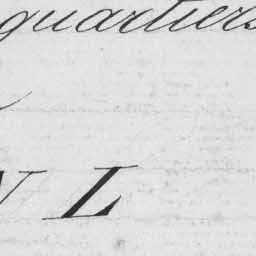 quartiers
L